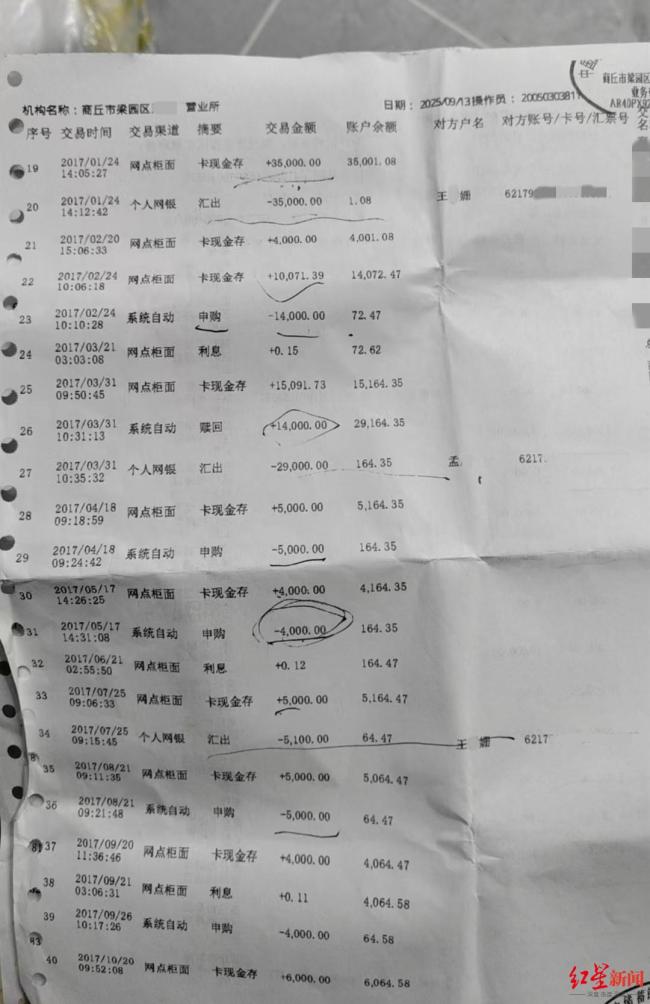 商丘市梁园区
业务
机构名称：商丘市梁园区 营业所 日期：2025/09/13操作员：2005030381
序号 交易时间 交易渠道 摘要 交易金额 账户余额 对方户名 对方账号/卡号/汇票号
19 2017/01/24 14:05:27 网点柜面 卡现金存 +35,000.00 35,001.08
20 2017/01/24 14:12:42 个人网银 汇出 -35,000.00 1.08 王 姗 62179
21 2017/02/20 15:06:33 网点柜面 卡现金存 +4,000.00 4,001.08
22 2017/02/24 10:06:18 网点柜面 卡现金存 +10,071.39 14,072.47
23 2017/02/24 10:10:28 系统自动 申购 -14,000.00 72.47
24 2017/03/21 03:03:08 网点柜面 利息 +0.15 72.62
25 2017/03/31 09:50:45 网点柜面 卡现金存 +15,091.73 15,164.35
26 2017/03/31 10:31:13 系统自动 赎回 +14,000.00 29,164.35
27 2017/03/31 10:35:32 个人网银 汇出 -29,000.00 164.35 孟 6217
28 2017/04/18 09:18:59 网点柜面 卡现金存 +5,000.00 5,164.35
29 2017/04/18 09:24:42 系统自动 申购 -5,000.00 164.35
30 2017/05/17 14:26:25 网点柜面 卡现金存 +4,000.00 4,164.35
31 2017/05/17 14:31:08 系统自动 申购 -4,000.00 164.35
32 2017/06/21 02:55:50 网点柜面 利息 +0.12 164.47
33 2017/07/25 09:06:33 网点柜面 卡现金存 +5,000.00 5,164.47
34 2017/07/25 09:15:45 个人网银 汇出 -5,100.00 64.47 王 姗 6217
35 2017/08/21 09:11:35 网点柜面 卡现金存 +5,000.00 5,064.47
36 2017/08/21 09:21:48 系统自动 申购 -5,000.00 64.47
37 2017/09/20 11:36:46 网点柜面 卡现金存 +4,000.00 4,064.47
38 2017/09/21 03:06:31 网点柜面 利息 +0.11 4,064.58
39 2017/09/26 10:17:26 系统自动 申购 -4,000.00 64.58
40 2017/10/20 09:52:08 网点柜面 卡现金存 +6,000.00 6,064.58
红星新闻